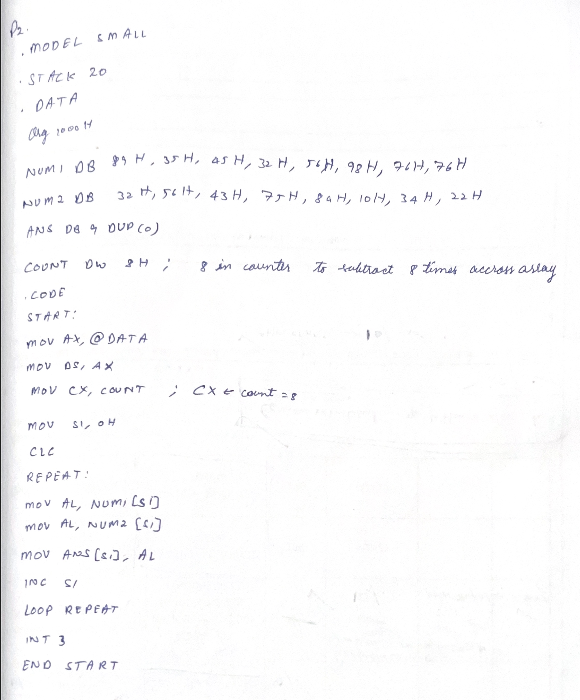 P2.
.MODEL SMALL
.STACK 20
.DATA
Org 1000H
NUM1 DB 89H, 35H, 45H, 32H, 56H, 98H, 76H, 76H
NUM2 DB 32H, 56H, 43H, 75H, 84H, 10H, 34H, 22H
ANS DB 9 DUP(0)
COUNT DW 8H ; 8 in counter to subtract 8 times accross array
.CODE
START:
MOV AX, @DATA
MOV DS, AX
MOV CX, COUNT ; CX ← count = 8
MOV SI, 0H
CLC
REPEAT:
MOV AL, NUM1[SI]
MOV AL, NUM2[SI]
MOV ANS[SI], AL
INC SI
LOOP REPEAT
INT 3
END START